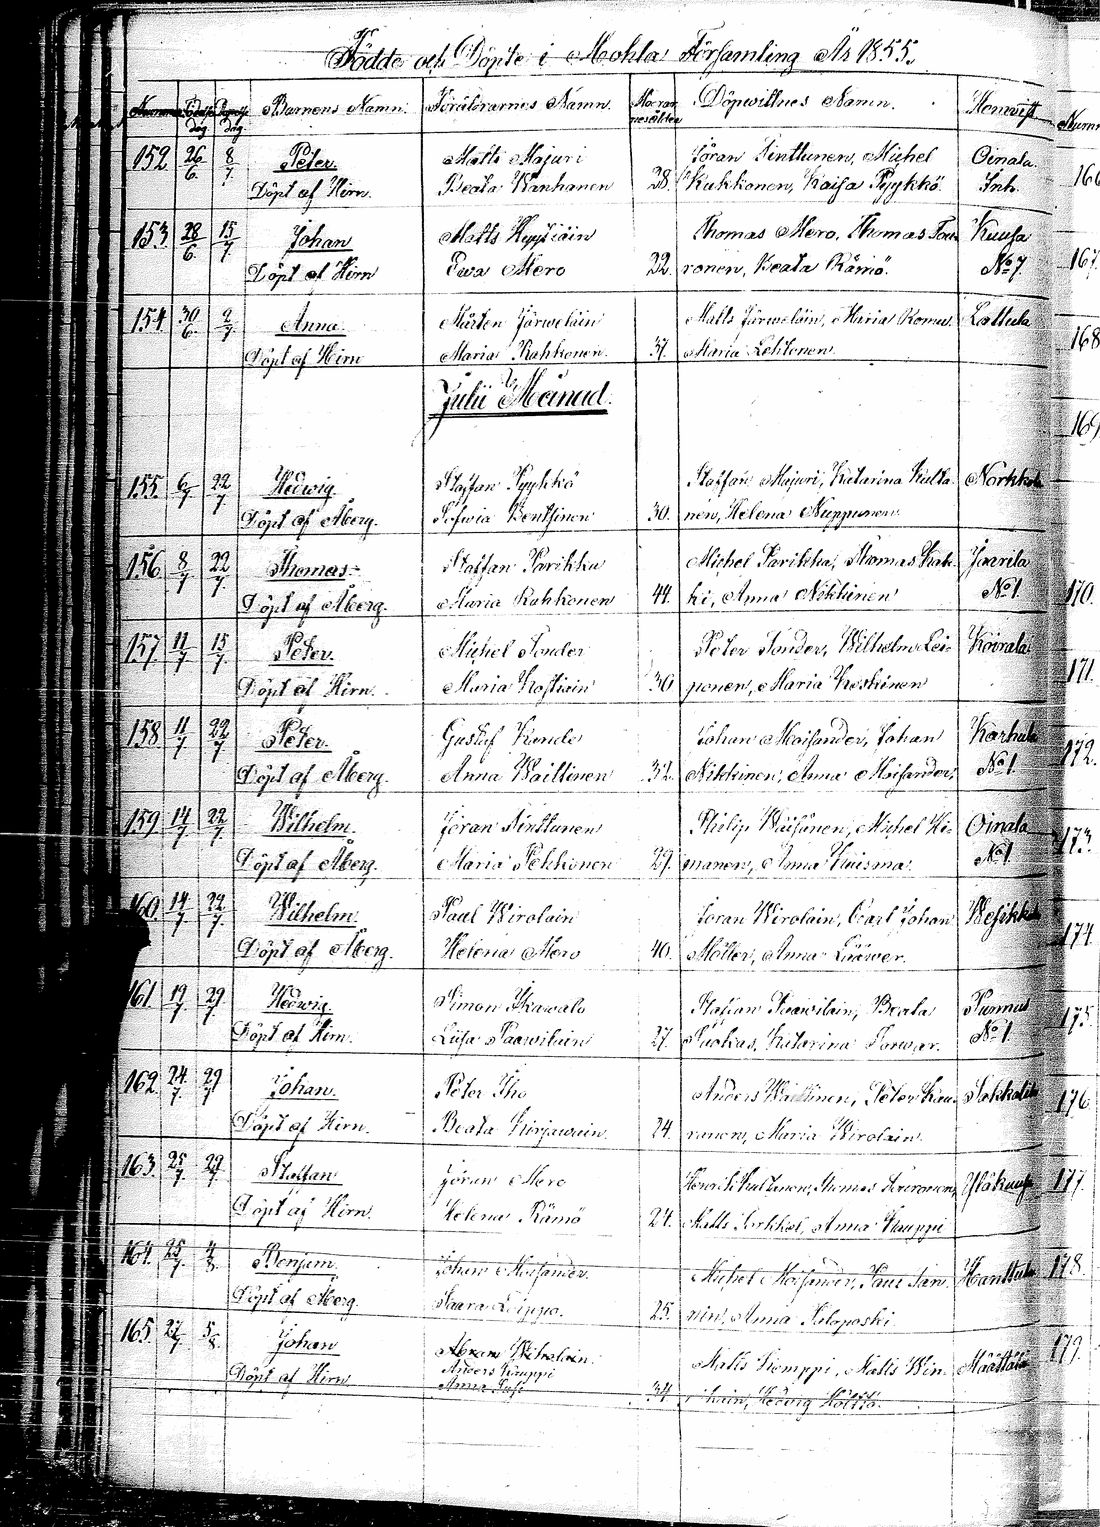 Födde och Döpte i Mohla Församling År 1855.
Födelse dag Barnens Namn. Föräldrarnes Namn. Döpvittnes Namn. Hemvist
152 26/6 8/7 Peter. Matts Majuri Jöran Sinttunen, Michel Oinala
Döpt af Hirn. Beata Wanhanen 28. Kukkonen, Kaisa Pyykkö. Inh.
153 28/6 15/7 Johan Matts Hyytiäin Thomas Mero, Thomas Tou- Kuusa
Döpt af Hirn Ewa Mero 22. ronen, Beata Rämö. No 7.
154 30/6 2/7 Anna. Mårten Järweläin Matts Järweläin, Maria Lattula
Döpt af Hirn Maria Kukkonen. 37. Maria Lehtonen.
Julii Månad.
155. 6/7 22/7 Hedwig. Staffan Pyykkö Staffan Majuri, Katarina Kulta- Norkkola
Döpt af Åberg. Sofwia Bentsinen 30. nen, Helena Nuppunen.
156 8/7 22/7 Thomas. Staffan Parikka Michel Parikka, Thomas Kak- Jaarila
Döpt af Åberg. Maria Kukkonen 44. ki, Anna Nikkinen No 1.
157. 11/7 15/7 Peter. Michel Sonder Peter Sonder, Wilhelm Lei- Koirala
Döpt af Hirn. Maria 30 ponen, Maria Keskinen
158 11/7 22/7 Peter. Gustaf Johan Moisander, Johan Karhula
Döpt af Åberg. Anna Waittinen 32. Nikkinen, Anna Moisander. No 1.
159 14/7 22/7 Wilhelm. Jöran Sinttunen Philip Michel Hi- Oinala
Döpt af Åberg. Maria Pekkonen 29. manen, Anna Kuisma. No 1.
160. 14/7 22/7 Wilhelm. Paul Wirolain Jöran Wirolain, Carl Johan Wesikkala
Döpt af Åberg. Helena Mero 40. Möller, Anna
161. 19/7 29/7 Hedwig. Simon Staffan Paawilain, Beata Punnus
Döpt af Hirn. Liisa Paawilain 27. Katarina No 1.
162. 24/7 29/7 Johan. Peter Iho Anders Waittinen, Peter Kau- Sokkala
Döpt af Hirn. Beata Kirjawain 24. ranen, Maria Wirolain.
163. 25/7 29/7 Staffan Jöran Mero Henrik Kultanen, Thomas Yläkuusa
Döpt af Hirn. Helena Rämö 24. Matts Anna Kauppi
164. 25/7 4/8 Benjam. Johan Moisander. Michel Moisander, Hanttula
Döpt af Åberg. Saara Leippo. 25. nin, Anna
165. 27/7 5/8 Johan
Anders Kauppi Matts Kemppi, Matts Win- Määttälä
Döpt af Hirn Anna 34. Hedwig Hölttö.
167.
168
169
170.
171.
172.
173.
174.
175.
176
177.
178.
179.